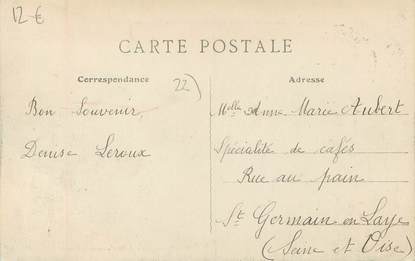 12 €
CARTE POSTALE
Correspondance
22)
Adresse
Bon Souvenir
Denise Leroux
Melle Anne Marie Aubert
Spécialité de cafés
Rue au pain
St Germain en Laye
(Seine et Oise)